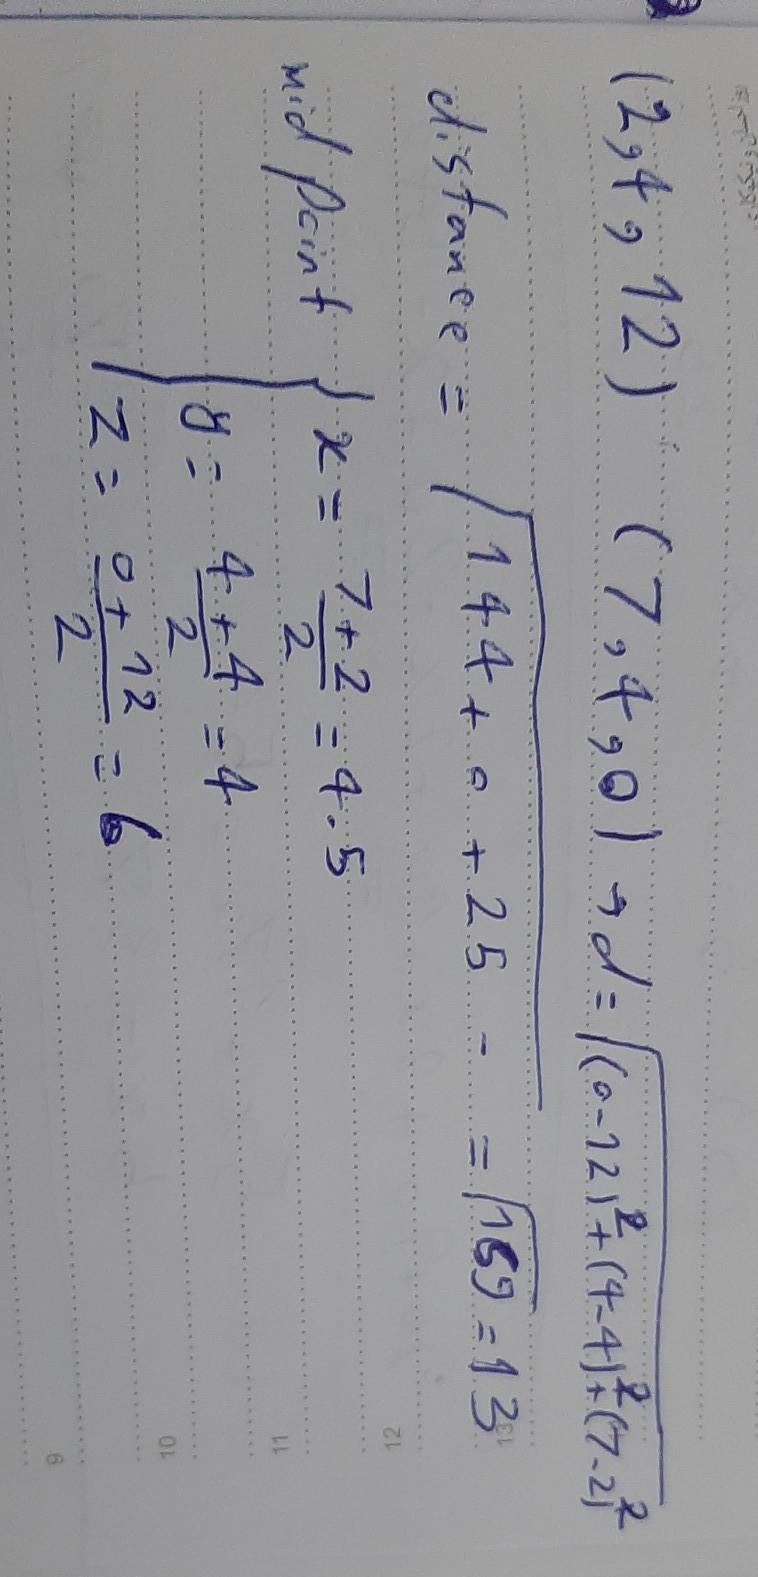 (2,4,12) (7,4,0) → d = √(0-12)² + (4-4)² + (7-2)²
distance = √144 + 0 + 25 - = √169 = 13
mid point { x = 7+2/2 = 4.5
y = 4+4/2 = 4
z = 0+12/2 = 6
13
12
11
10
9